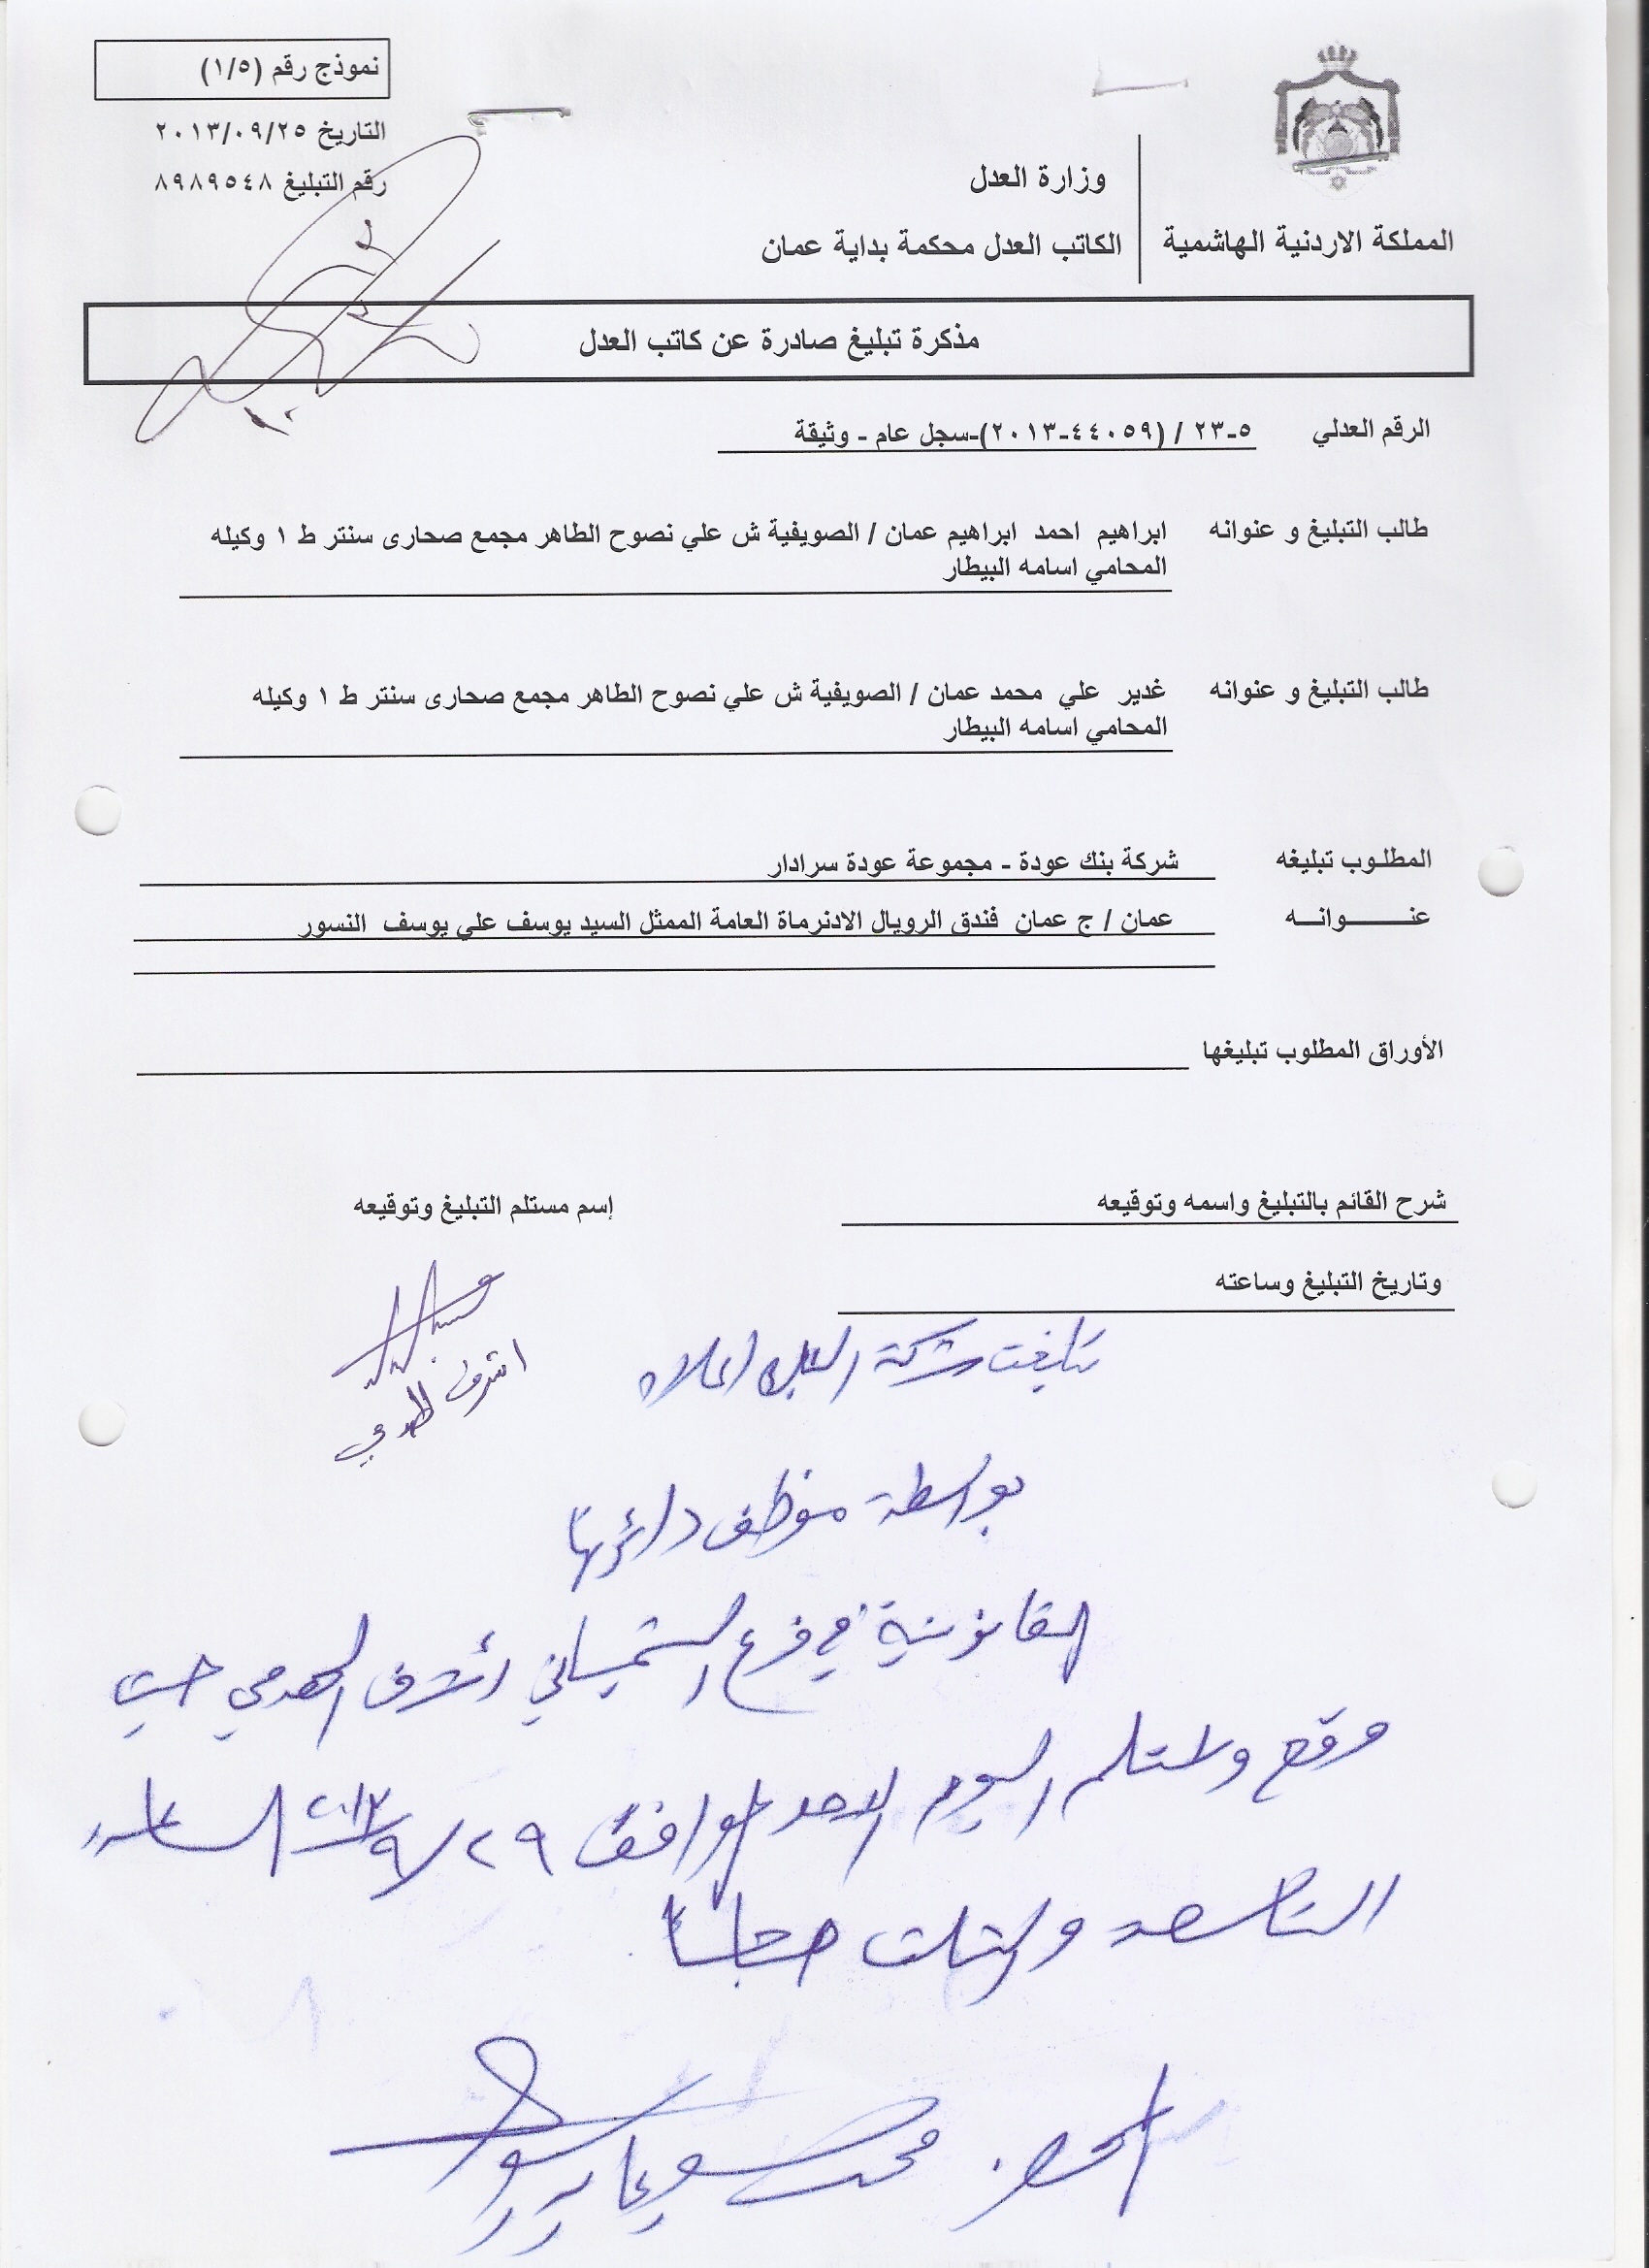 نموذج رقم (١/٥)
التاريخ ٢٠١٣/٠٩/٢٥
رقم التبليغ ٨٩٨٩٥٤٨
وزارة العدل
المملكة الاردنية الهاشمية
الكاتب العدل محكمة بداية عمان
مذكرة تبليغ صادرة عن كاتب العدل
الرقم العدلي ٥-٢٣ / (٤٤٠٥٩-٢٠١٣)-سجل عام - وثيقة
طالب التبليغ و عنوانه ابراهيم احمد ابراهيم عمان / الصويفية ش علي نصوح الطاهر مجمع صحارى سنتر ط ١ وكيله
المحامي اسامه البيطار
طالب التبليغ و عنوانه غدير علي محمد عمان / الصويفية ش علي نصوح الطاهر مجمع صحارى سنتر ط ١ وكيله
المحامي اسامه البيطار
المطلوب تبليغه شركة بنك عودة - مجموعة عودة سرادار
عنـــــــوانـــه عمان / ج عمان فندق الرويال الادنرماة العامة الممثل السيد يوسف علي يوسف النسور
الأوراق المطلوب تبليغها
شرح القائم بالتبليغ واسمه وتوقيعه
إسم مستلم التبليغ وتوقيعه
وتاريخ التبليغ وساعته
اشرف
تبلغت شركة البنك اعلاه
بواسطة موظف دائرتها
القانونية في فرع الشميساني اشرف حيث
وقع واستلم اليوم الاحد الموافق ٢٩/٩/٢٠١٣ الساعة
التاسعة والثلث صباحاً
المحضر محمد